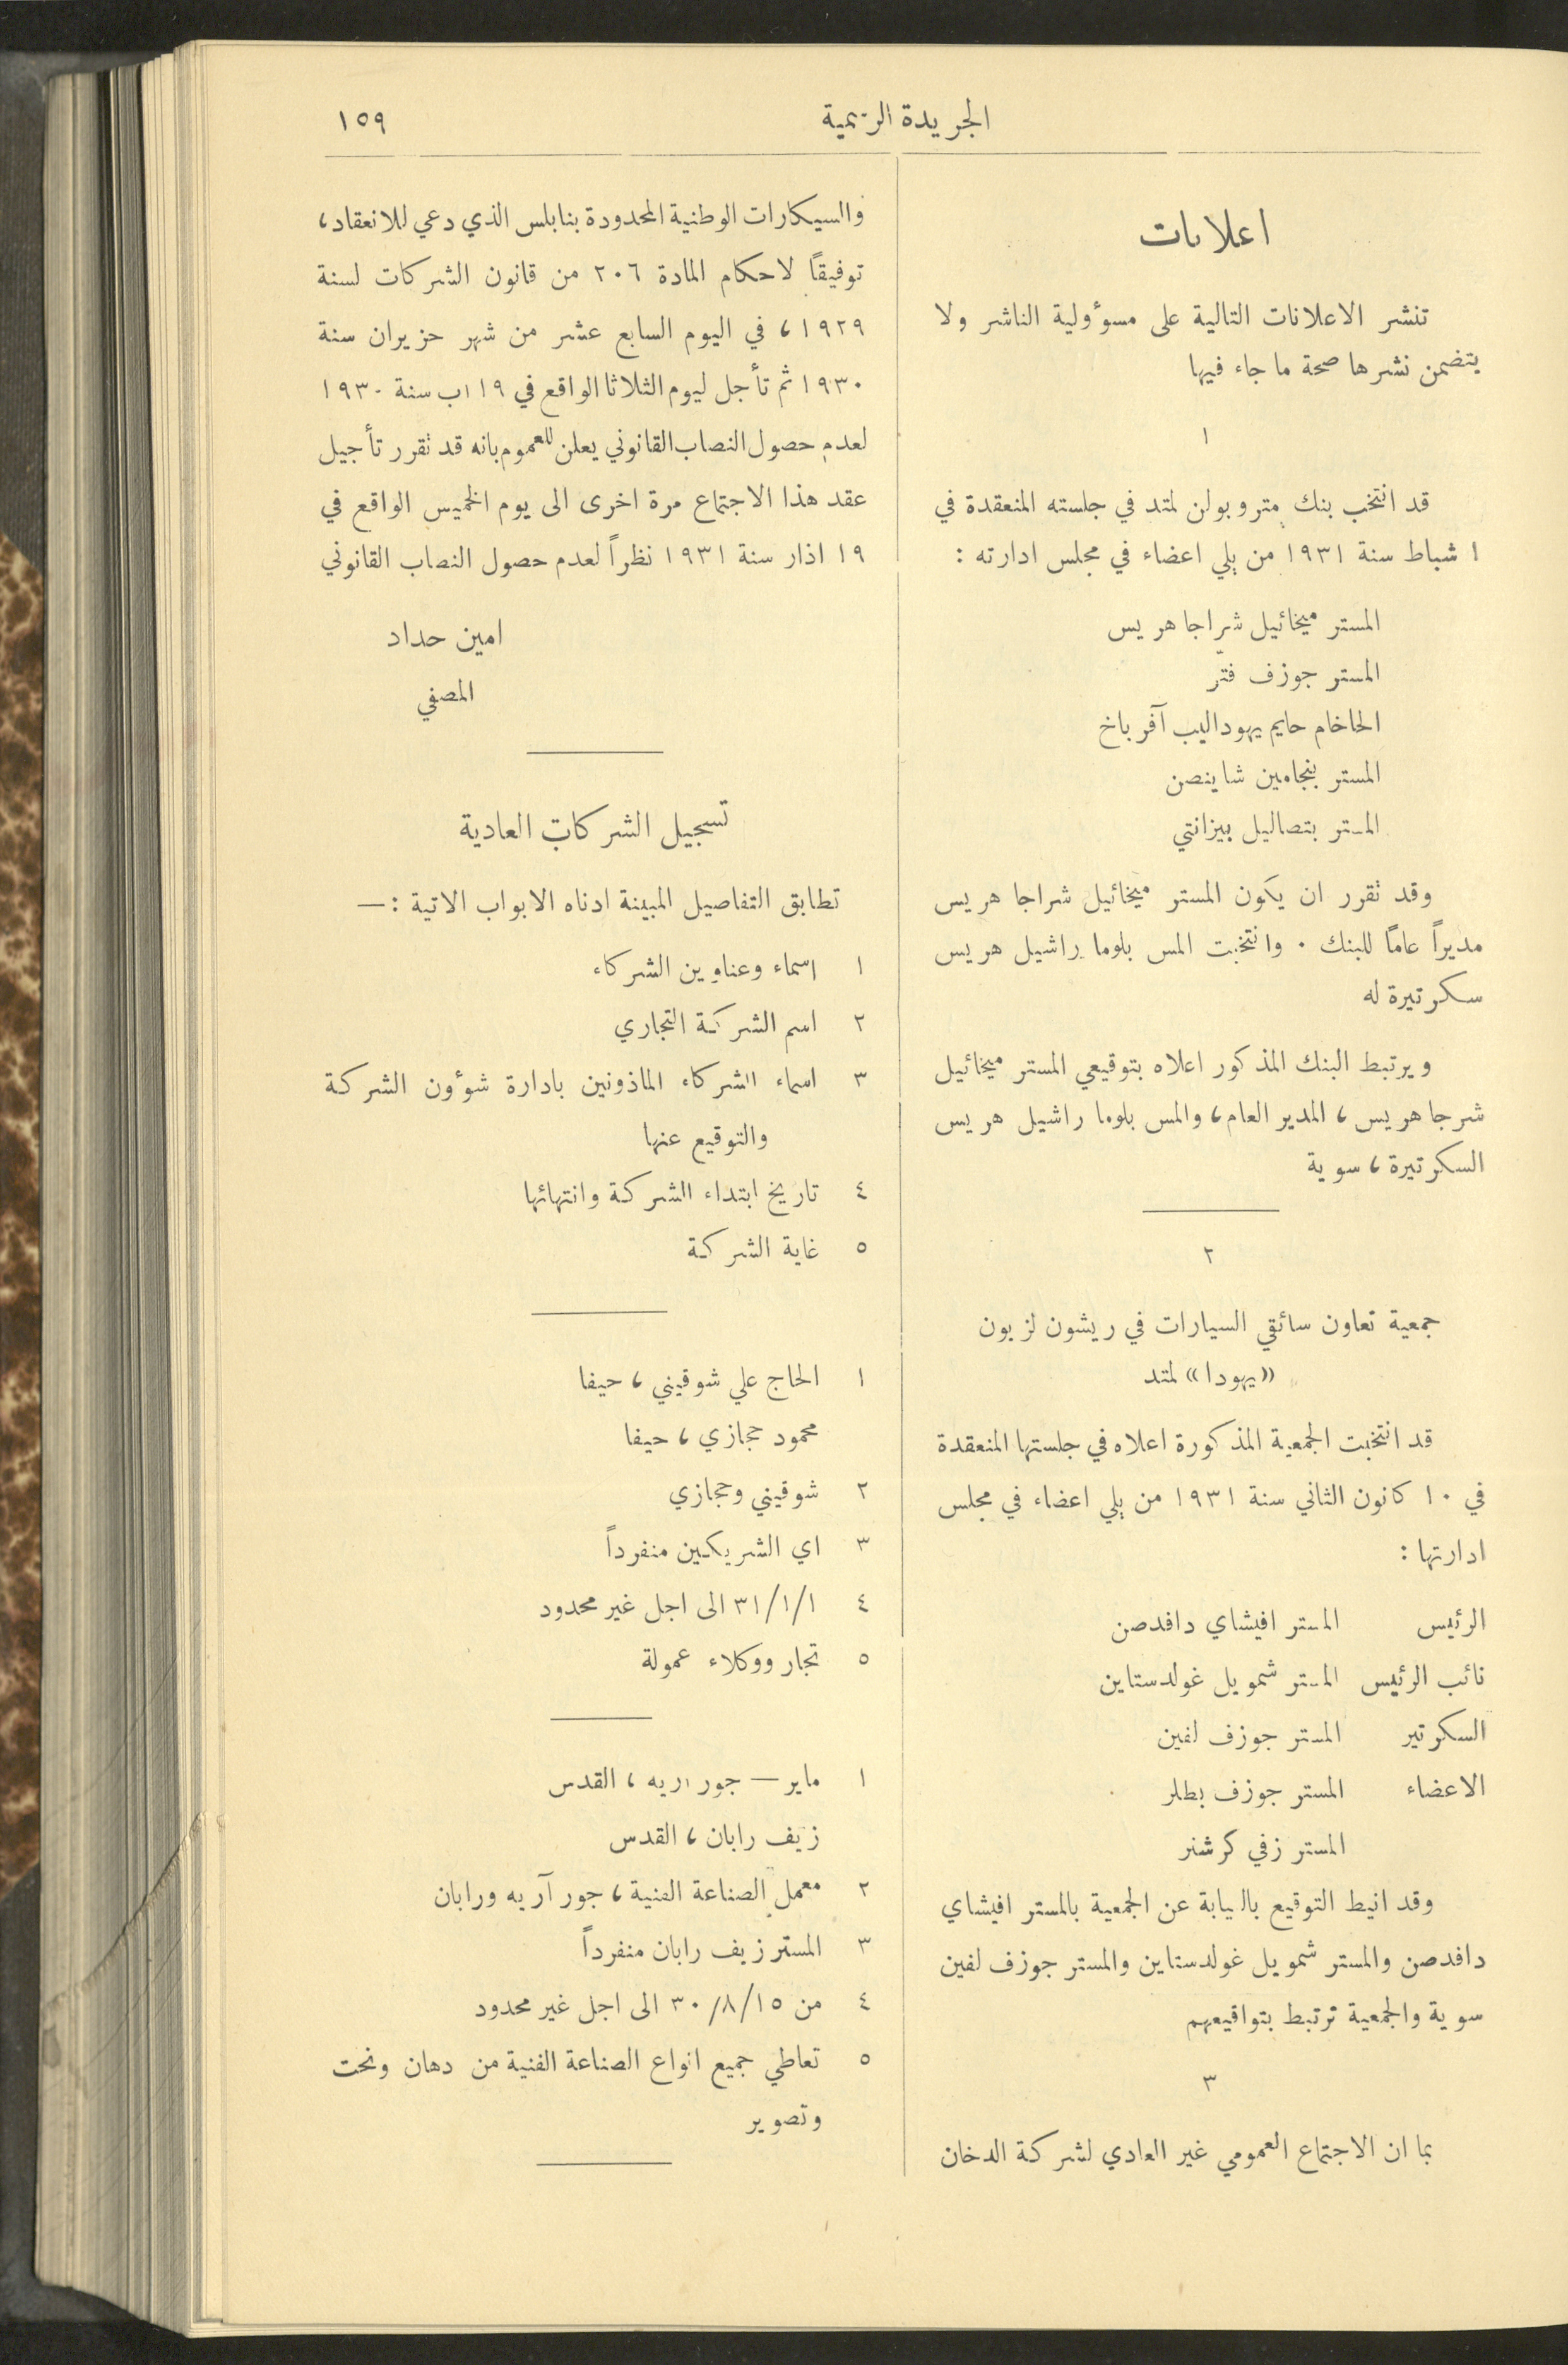 الجريدة الرسمية
١٥٩
اعلانات
تنشر الاعلانات التالية على مسوؤلية الناشر ولا
يتضمن نشرها صحة ما جاء فيها
١
قد انتخب بنك متروبولن لمتد في جلسته المنعقدة في
١ شباط سنة ١٩٣١ من يلي اعضاء في مجلس ادارته :
المستر ميخائيل شراجا هريس
المستر جوزف فتّر
الحاخام حايم يهوداليب آفرباخ
المستر بنجامين شاينصن
المستر بتصاليل بيزانتي
وقد تقرر ان يكون المستر ميخائيل شراجا هريس
مديراً عامًا للبنك ٠ وانتخبت المس بلوما راشيل هريس
سكرتيرة له
ويرتبط البنك المذكور اعلاه بتوقيعي المستر ميخائيل
شرجا هريس ، المدير العام ، والمس بلوما راشيل هريس
السكرتيرة ، سوية
٢
جمعية تعاون سائقي السيارات في ريشون لزيون
«يهودا» لمتد
قد انتخبت الجمعية المذكورة اعلاه في جلستها المنعقدة
في ١٠ كانون الثاني سنة ١٩٣١ من يلي اعضاء في مجلس
ادارتها :
الرئيس المستر افيشاي دافدصن
نائب الرئيس المستر شمويل غولدستاين
السكرتير المستر جوزف لفين
الاعضاء المستر جوزف بطلر
المستر زفي كرشنر
وقد انيط التوقيع بالنيابة عن الجمعية بالمستر افيشاي
دافدصن والمستر شمويل غولدستاين والمستر جوزف لفين
سوية والجمعية ترتبط بتواقيعهم
٣
بما ان الاجتماع العمومي غير العادي لشركة الدخان
والسيكارات الوطنية المحدودة بنابلس الذي دعي للانعقاد ،
توفيقًا لاحكام المادة ٢٠٦ من قانون الشركات لسنة
١٩٢٩ ، في اليوم السابع عشر من شهر حزيران سنة
١٩٣٠ ثم تأجل ليوم الثلاثا الواقع في ١٩ اب سنة ١٩٣٠
لعدم حصول النصاب القانوني يعلن للعموم بانه قد تقرر تأجيل
عقد هذا الاجتماع مرة اخرى الى يوم الخميس الواقع في
١٩ اذار سنة ١٩٣١ نظراً لعدم حصول النصاب القانوني
امين حداد
المصفي
تسجيل الشركات العادية
تطابق التفاصيل المبينة ادناه الابواب الاتية : —
١ اسماء وعناوين الشركاء
٢ اسم الشركة التجاري
٣ اسماء الشركاء الماذونين بادارة شوؤن الشركة
والتوقيع عنها
٤ تاريخ ابتداء الشركة وانتهائها
٥ غاية الشركة
١ الحاج علي شوقيني ، حيفا
محمود حجازي ، حيفا
٢ شوقيني وحجازي
٣ اي الشريكين منفرداً
٤ ٣١/١/١ الى اجل غير محدود
٥ تجار ووكلاء عمولة
١ ماير — جور اريه ، القدس
زيف رابان ، القدس
٢ معمل الصناعة الفنية ، جور آريه ورابان
٣ المستر زيف رابان منفرداً
٤ من ٣٠/٨/١٥ الى اجل غير محدود
٥ تعاطي جميع انواع الصناعة الفنية من دهان ونحت
وتصوير